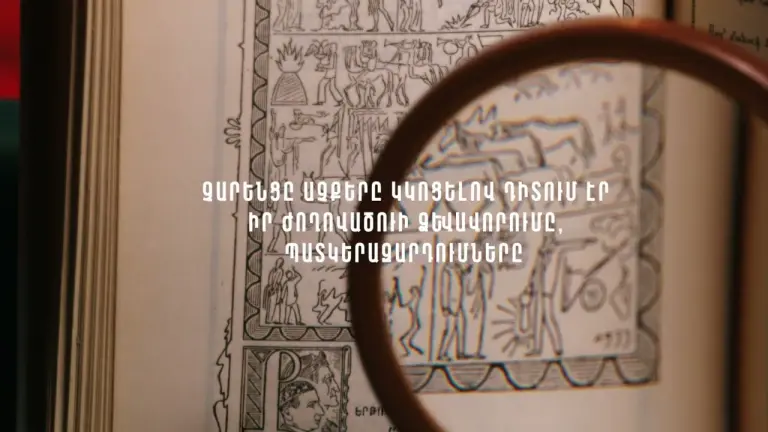 ՉԱՐԵՆՑԸ ԱՉՔԵՐԸ ԿԿՈՑԵԼՈՎ ԴԻՏՈՒՄ ԷՐ
ԻՐ ԺՈՂՈՎԱԾՈՒԻ ՁԵՎԱՎՈՐՈՒՄԸ,
ՊԱՏԿԵՐԱԶԱՐԴՈՒՄՆԵՐԸ